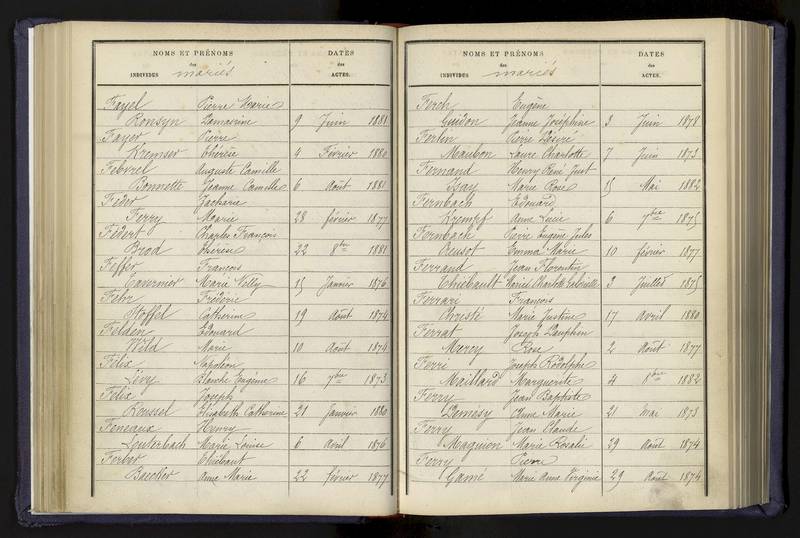 NOMS ET PRÉNOMS DATES
des des
INDIVIDUS mariés ACTES.
Fayel Pierre Marie
Ronsyn Lamarine 9 Juin 1881
Fayer Pierre
Kremser Thérèse 4 Février 1880
Febvrel Auguste Camille
Bonnette Jeanne Camille 6 Août 1881
Feder Zacharie
Ferry Marie 28 février 1877
Federt Charles François
Brod Thérèse 22 8bre 1881
Feffer François
Tavernier Marie Nelly 15 Janvier 1876
Fehr Frédéric
Hoffel Catherine 19 août 1874
Felden Edouard
Wild Marie 10 Août 1874
Félix Napoléon
Lévy Blanche Eugénie 16 7bre 1873
Félix Joseph
Roussel Elisabeth Catherine 21 Janvier 1880
Feneaux Henry
Leuterbach Marie Louise 6 Avril 1876
Ferber Thiébaut
Baecher Anne Marie 22 février 1877
NOMS ET PRÉNOMS DATES
des des
INDIVIDUS mariés ACTES.
Ferch Eugène
Guidon Jeanne Joséphine 3 Juin 1878
Ferlin Pierre Désiré
Maubon Laure Charlotte 7 Juin 1873
Fernand Henry René Just
Isay Marie Rose 15 Mai 1882
Fernbach Edouard
Krempf Anne Lucie 6 7bre 1875
Fernbach Pierre Eugène Jules
Creusot Emma Marie 10 février 1877
Ferrand Jean Florentin
Thiébault Marie Charlotte Gabrielle 3 Juillet 1875
Ferrari François
Christé Marie Justine 17 avril 1880
Ferrat Joseph Dauphin
Mercy Rose 2 Août 1877
Ferri Joseph Rodolphe
Maillard Marguerite 4 8bre 1882
Ferry Jean Baptiste
Demesy Anne Marie 21 Mai 1873
Ferry Jean Claude
Maguion Marie Rosalie 29 Août 1874
Ferry Pierre
Gamé Marie Anne Virginie 29 Août 1874